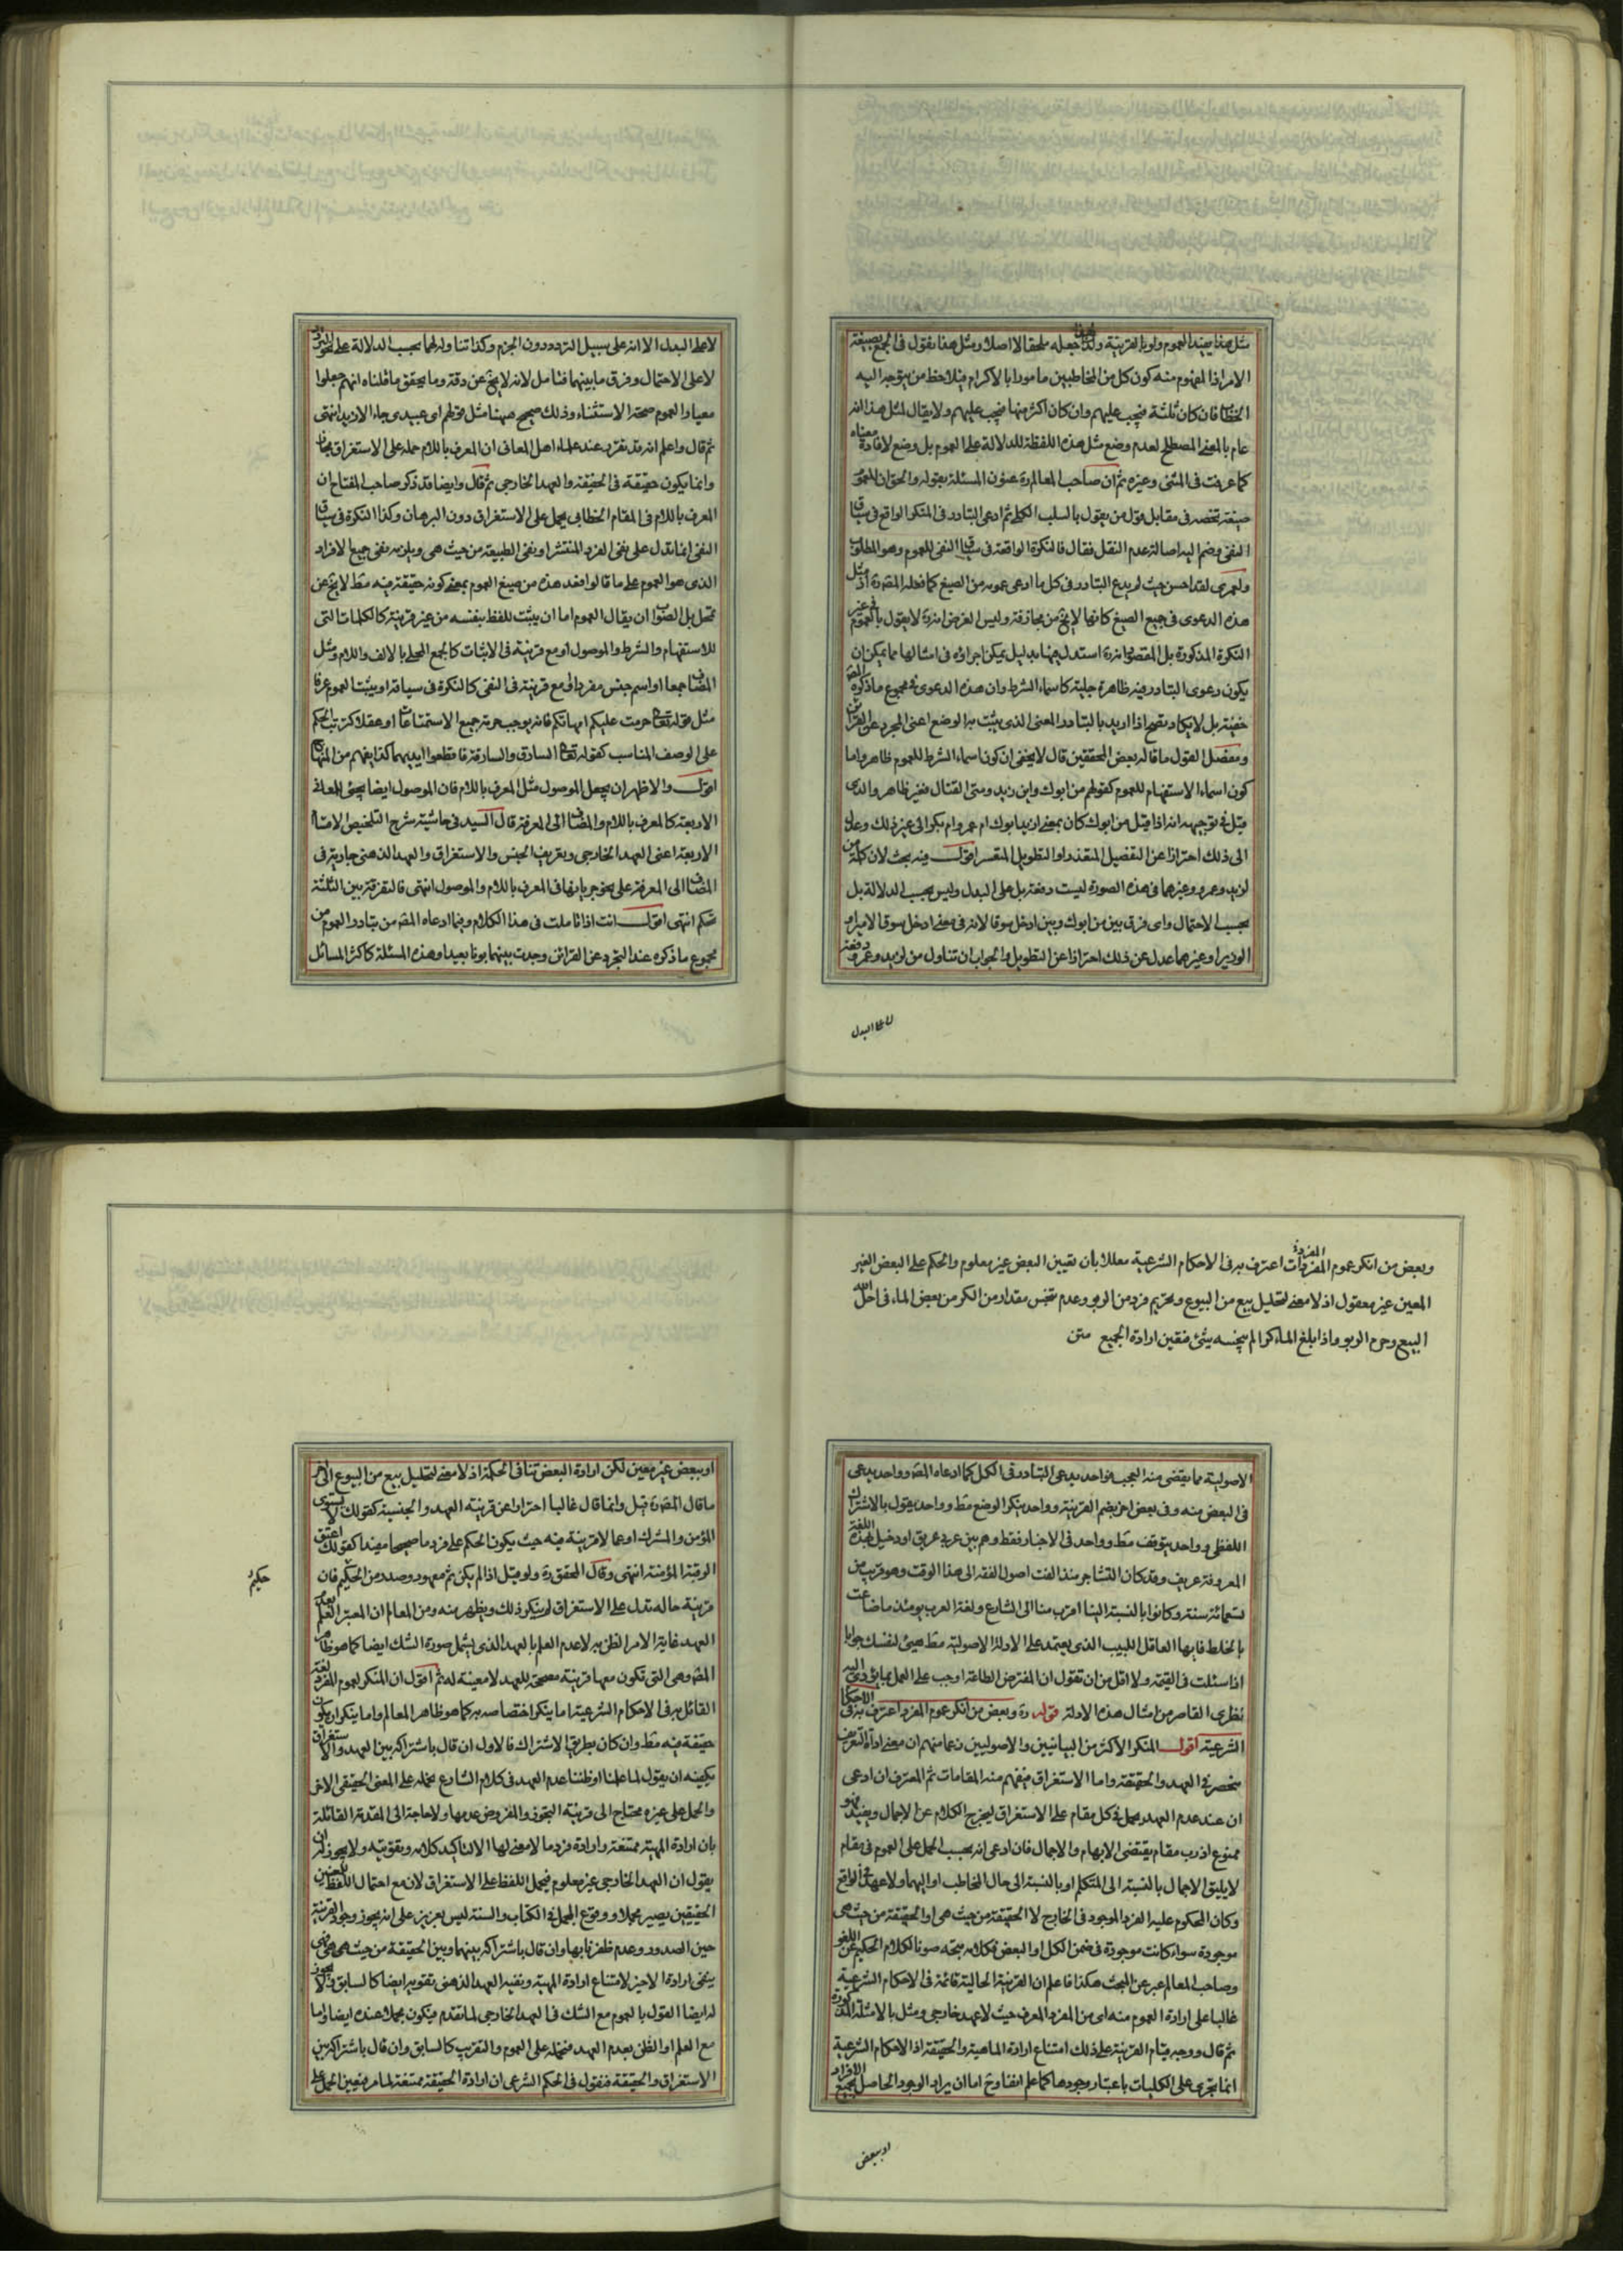 مثل هذا يفيد العموم ولو بالقرينة ولذا جعله ملحقا لا اصلا ومثل هذا نقول في الجمع بصيغة
الامر اذا المفهوم منه كون كل من المخاطبين مامورا بالاكرام فيلاحظ من يتوجه اليه
الخطاب فان كان ثلثة فيجب عليهم وان كان اكثر منها فيجب عليهم ولا يقال لمثل هذا انه
عام بالمعنى المصطلح لعدم وضع مثل هذه اللفظة للدلالة على العموم بل وضع لافادة معناه
كما عرفت في المثنى وغيره ثم ان صاحب المعالم ره عنون المسئلة بقوله والحق ان للعموم
صيغة تخصه في مقابل قول من يقول بالسلب الكلي ثم ادعى التبادر في المنكر الواقع في سياق
النفي وضم اليه اصالة عدم النقل فقال فالنكرة الواقعة في سياق النفي للعموم وهو المطلوب
ولعمري لقد احسن حيث لم يدع التبادر في كل ما ادعى عمومه من الصيغ كما فعله المصره اذ مثل
هذه الدعوى في جميع الصيغ كانها لا يخ من مجازفة وليس الغرض انه ره لا يقول بالعموم في غير
النكرة المذكورة بل المقصود انه ره استدل ههنا بدليل يمكن اجراؤه في امثالها مما يمكن ان
يكون دعوى التبادر فيه ظاهرة جلية كاسماء الشرط وان هذه الدعوى في مجموع ما ذكره المصه
خفية بل لا يكاد يصح اذا اريد بالتبادر المعنى الذي يثبت به الوضع اعني المجرد عن القرائن
ومفصل القول ما قاله بعض المحققين قال لا يخفى ان كون اسماء الشرط للعموم ظاهر واما
كون اسماء الاستفهام للعموم كقولهم من ابوك واين زيد ومتى القتال فغير ظاهر والذي
قيل في توجيهه انه اذا قيل من ابوك كان بمعنى ازيد ابوك ام عمرو ام بكر الى غير ذلك وعدل
الى ذلك احترازا عن التفصيل المتعذر او التطويل المتعسر اقول فيه بحث لان كلمة من
لزيد وعمرو وغيرهما في هذه الصورة ليست دفعة بل على البدل وليس بحسب الدلالة بل
بحسب الاحتمال واى فرق بين من ابوك وبين ادخل سوقا لانه في معنى ادخل سوق الامير او
الوزير او غيرهما عدل عن ذلك احترازا عن التطويل والجواب ان تناول من لزيد وعمرو دفعة
لا على البدل
لا على البدل الا انه على سبيل التردد دون الجزم وكذا تناوله لهما بحسب الدلالة على نحو التردد
لا على الاحتمال وفرق ما بينهما فتامل لانه لا يخ عن دقة وما يحقق ما قلناه انهم جعلوا
معيار العموم صحة الاستثناء وذلك صحيح ههنا مثل قولهم اى عبيدى جاء الا زيد انتهى
ثم قال واعلم انه قد تقرر عند علماء اهل المعاني ان المعرف باللام حمله على الاستغراق مجاز
وانما يكون حقيقة في الحقيقة والعهد الخارجي ثم قال وايضا قد ذكر صاحب المفتاح ان
المعرف باللام في المقام الخطابي يحمل على الاستغراق دون البرهان وكذا النكرة في سياق
النفي انما تدل على نفي الفرد المنتشر او نفي الطبيعة من حيث هي ويلزمه نفي جميع الافراد
الذي هو العموم على ما قالوا فعد هذه من صيغ العموم بمعنى كونه حقيقة فيه فقط لا يخ عن
تمحل بل الصواب ان يقال العموم اما ان يثبت للفظ بنفسه من غير قرينة كالكلمات التي
للاستفهام والشرط والموصول او مع قرينة في الاثبات كالجمع المحلى بالالف واللام ومثل
المضاف جمعا او اسم جنس مفردا او مع قرينة في النفي كالنكرة في سياقه او يثبت العموم عرفا
مثل قوله تعالى حرمت عليكم امهاتكم فانه يوجب حرمة جميع الاستمتاعات او عقلا كترتب الحكم
على الوصف المناسب كقوله تعالى السارق والسارقة فاقطعوا ايديهما كذا يفهم من المنهاج
اقول والاظهر ان يجعل الموصول مثل المعرف باللام فان الموصول ايضا يجئ للمعاني
الاربعة كالمعرف باللام والمضاف الى المعرفة قال السيد في حاشية شرح التلخيص الاقسام
الاربعة اعني العهد الخارجي وتعريف الجنس والاستغراق والعهد الذهني جارية في
المضاف الى المعرفة على نحو جريانها في المعرف باللام والموصول انتهى فالتفرقة بين الثلثة
تحكم انتهى اقول انت اذا تاملت في هذا الكلام وفيما ادعاه المصه من تبادر العموم من
مجموع ما ذكره عند التجرد عن القرائن وجدت بينهما بونا بعيدا وهذه المسئلة كاكثر المسائل
وبعض من انكر عموم المفردات المفرد اعترف به في الاحكام الشرعية معللا بان تعيين البعض غير معلوم والحكم على البعض الغير
المعين غير معقول اذ لا معنى لتحليل بيع من البيوع وتحريم فرد من الربو وعدم تنجس مقدار من الكر من بعض الماء في احل الله
البيع وحرم الربو واذا بلغ الماء كرا لم ينجسه شئ فتعين ارادة الجميع متن
الاصولية مما يقضى منه العجب فواحد يدعي التبادر في الكل كما ادعاه المصه وواحد يدعي
في البعض منه وفي بعض اخر يضم القرينة وواحد ينكر الوضع فقط وواحد يقول بالاشتراك
اللفظي وواحد يتوقف فقط وواحد في الاخبار فقط وهم بين عربي عريق او دخيل بهذه اللغة
المعروفة عريف وقد كان التشاجر منذ الفت اصول الفقه الى هذا الوقت وهو قريب من
تسعمائة سنة وكانوا بالنسبة الينا اقرب منا الى الشارع ولغة العرب يومئذ ما ضاعت
بالخلط فايها العاقل اللبيب الذي يعتمد على الادلة الاصولية فقط هيئ لنفسك جوابا
اذا سئلت في القيمة ولا اقل من ان تقول ان المفترض الطاعة اوجب على العمل بما يؤدي اليه
نظري القاصر من امثال هذه الادلة قوله ره وبعض من انكر عموم المفرد اعترف به في الاحكام
الشرعية اقول المنكر الاكثر من البيانيين والاصوليين زعما منهم ان معنى اداة التعريف
منحصر في العهد والحقيقة واما الاستغراق فيفهم منه المقامات ثم المعترف ان ادعى
ان عند عدم العهد يحمل في كل مقام على الاستغراق ليخرج الكلام عن الاجمال ويفيد فهو
ممنوع اذ رب مقام يقتضي الابهام والاجمال فان ادعى انه يجب الحمل على العموم في مقام
لا يليق الاجمال بالنسبة الى المتكلم او بالنسبة الى حال المخاطب او اليهما ولا عهد في الواقع
وكان المحكوم عليه الفرد الموجود في الخارج لا الحقيقة من حيث هي او الحقيقة من حيث هي
موجودة سواء كانت موجودة في ضمن الكل او البعض فكلامه متجه صونا لكلام الحكيم عن اللغو
وصاحب المعالم عبر عن المبحث هكذا فاعلم ان القرينة الحالية قائمة في الاحكام الشرعية
غالبا على ارادة العموم منه اى من المفرد المعرف حيث لا عهد خارجي ومثل بالامثلة المذكورة
ثم قال ووجه قيام القرينة على ذلك امتناع ارادة الماهية والحقيقة اذ الاحكام الشرعية
انما تجري على الكليات باعتبار وجودها كما علم انفا وح اما ان يراد الوجود الحاصل لجميع الافراد
او ببعض
او ببعض غير معين لكن ارادة البعض تنافي الحكمة اذ لا معنى لتحليل بيع من البيوع الى اخر
ما قال المصره قيل وانما قال غالبا احترازا عن قرينة العهد والجنسية كقولك لا يستوي
المؤمن والمشرك او عما لا قرينة فيه حيث يكون الحكم على فرد ما صحيحا مفيدا كقولك اعتق
الرقبة المؤمنة انتهى وقال المحقق ره ولو قيل اذا لم يكن ثم معهود وصدر من الحكيم فان
حكيم
قرينة حاله تدل على الاستغراق لم ينكر ذلك ويظهر منه ومن المعالم ان المعتبر العلم بعدم
العهد غاية الامر الظن به لا عدم العلم بالعهد الذي يشمل صورة الشك ايضا كما هو ظاهر
المصه وهي التي تكون معها قرينة مصححة للعهد لا معينة له ثم اقول ان المنكر لعموم المفرد لغة
القائل به في الاحكام الشرعية اما ينكر اختصاصه به كما هو ظاهر المعالم واما ينكر ان يكون
حقيقة فيه فقط وان كان بطريق الاشتراك فالاول ان قال باشتراكه بين العهد والاستغراق
يكفيه ان يقول لما علمنا او ظننا عدم العهد في كلام الشارع نحمله على المعنى الحقيقي الاخر
والحمل على غيره محتاج الى قرينة التجوز والمفروض عدمها ولا حاجة الى المقدمة القائلة
بان ارادة المهية ممتنعة وارادة فرد ما لا معنى لها الا لتاكيد كلامه وتقويته ولا يجوز له ان
يقول ان العهد الخارجي غير معلوم فيحمل اللفظ على الاستغراق لان مع احتمال اللفظ للمعنيين
الحقيقين يصير مجملا ووقوع المجمل في الكتاب والسنة ليس بعزيز على انه يجوز وجود القرينة
حين الصدور وعدم ظفرنا بها وان قال باشتراكه بينهما وبين الحقيقة من حيث هي هي
ينفي ارادة الاخير لامتناع ارادة المهية وبقيد العهد الذهني تقويه ايضا كالسابق ولا يجوز
له ايضا القول بالعموم مع الشك في العهد الخارجي لما تقدم فيكون مجملا عنده ايضا واما
مع العلم او الظن بعدم العهد فنحمله على العموم والتقريب كالسابق وان قال باشتراكه بين
الاستغراق والحقيقة فنقول في الحكم الشرعي ان ارادة الحقيقة ممتنعة لما مر فتعين الحمل على